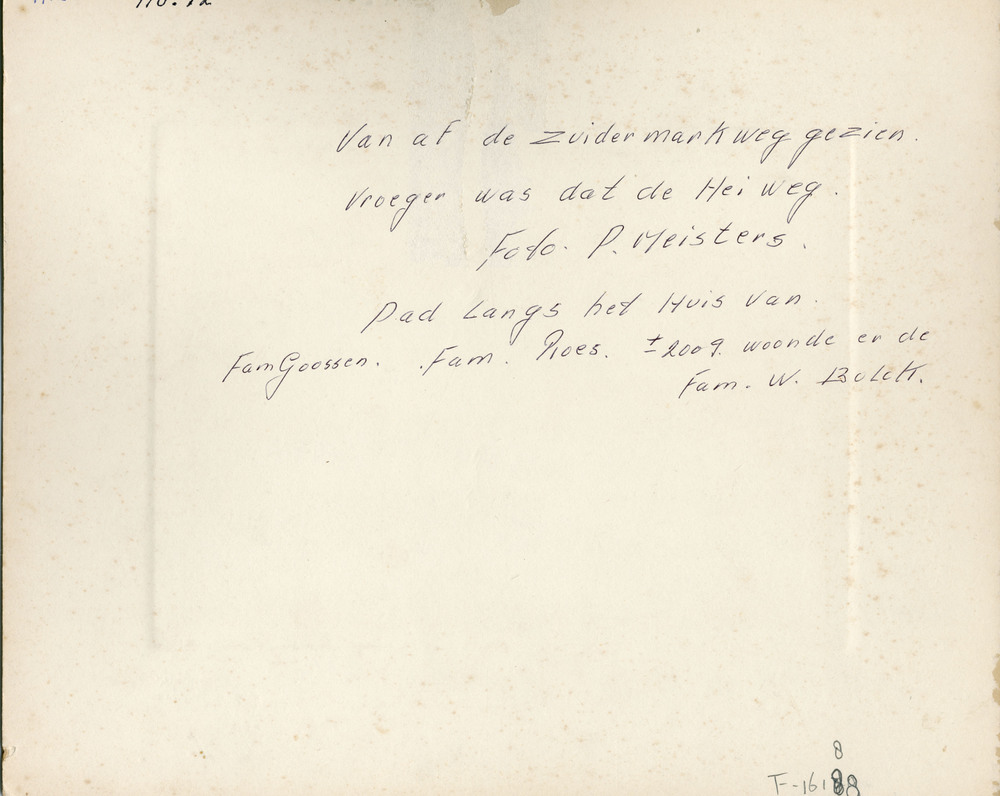 No. 12
Van af de zuidermarkweg gezien.
Vroeger was dat de Heiweg.
Foto. P. Meisters.
Pad Langs het Huis van.
Fam Goossen. Fam. Roes. ± 2009. woonde er de
Fam. W. Bolck.
8